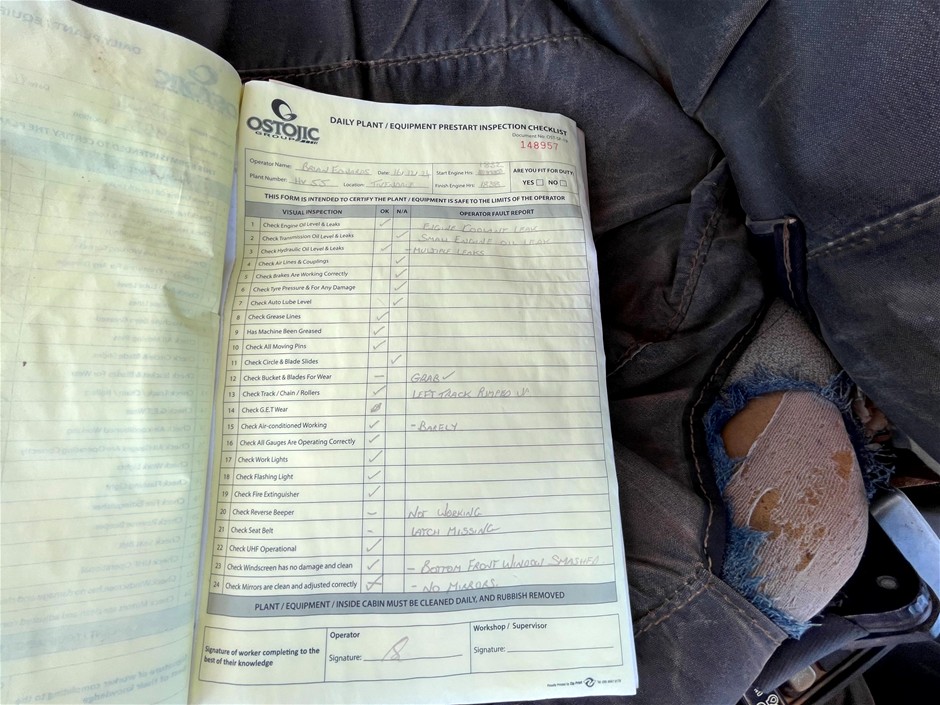 OSTOJIC
GROUP
DAILY PLANT / EQUIPMENT PRESTART INSPECTION CHECKLIST
Document No:
148957
Operator Name: BRIAN EDWARDS Date: Start Engine Hrs: ARE YOU FIT FOR DUTY:
Plant Number: HV 55 Location: Finish Engine Hrs: YES NO
THIS FORM IS INTENDED TO CERTIFY THE PLANT / EQUIPMENT IS SAFE TO THE LIMITS OF THE OPERATOR
VISUAL INSPECTION OK N/A OPERATOR FAULT REPORT
1 Check Engine Oil Level & Leaks ✓ ENGINE COOLANT LEAK
2 Check Transmission Oil Level & Leaks ✓ SMALL ENGINE OIL LEAK
3 Check Hydraulic Oil Level & Leaks ✓ - MULTIPLE LEAKS
4 Check Air Lines & Couplings ✓
5 Check Brakes Are Working Correctly ✓
6 Check Tyre Pressure & For Any Damage ✓
7 Check Auto Lube Level ✓
8 Check Grease Lines ✓
9 Has Machine Been Greased ✓
10 Check All Moving Pins ✓
11 Check Circle & Blade Slides ✓
12 Check Bucket & Blades For Wear — GRAB ✓
13 Check Track / Chain / Rollers ✓ LEFT TRACK PUMPED UP
14 Check G.E.T Wear
15 Check Air-conditioned Working ✓ - BARELY
16 Check All Gauges Are Operating Correctly ✓
17 Check Work Lights ✓
18 Check Flashing Light ✓
19 Check Fire Extinguisher ✓
20 Check Reverse Beeper – NOT WORKING
21 Check Seat Belt - LATCH MISSING
22 Check UHF Operational ✓
23 Check Windscreen has no damage and clean ✓ - BOTTOM FRONT WINDOW SMASHED
24 Check Mirrors are clean and adjusted correctly - NO MIRRORS.
PLANT / EQUIPMENT / INSIDE CABIN MUST BE CLEANED DAILY, AND RUBBISH REMOVED
Signature of worker completing to the
best of their knowledge
Operator
Signature:
Workshop / Supervisor
Signature: